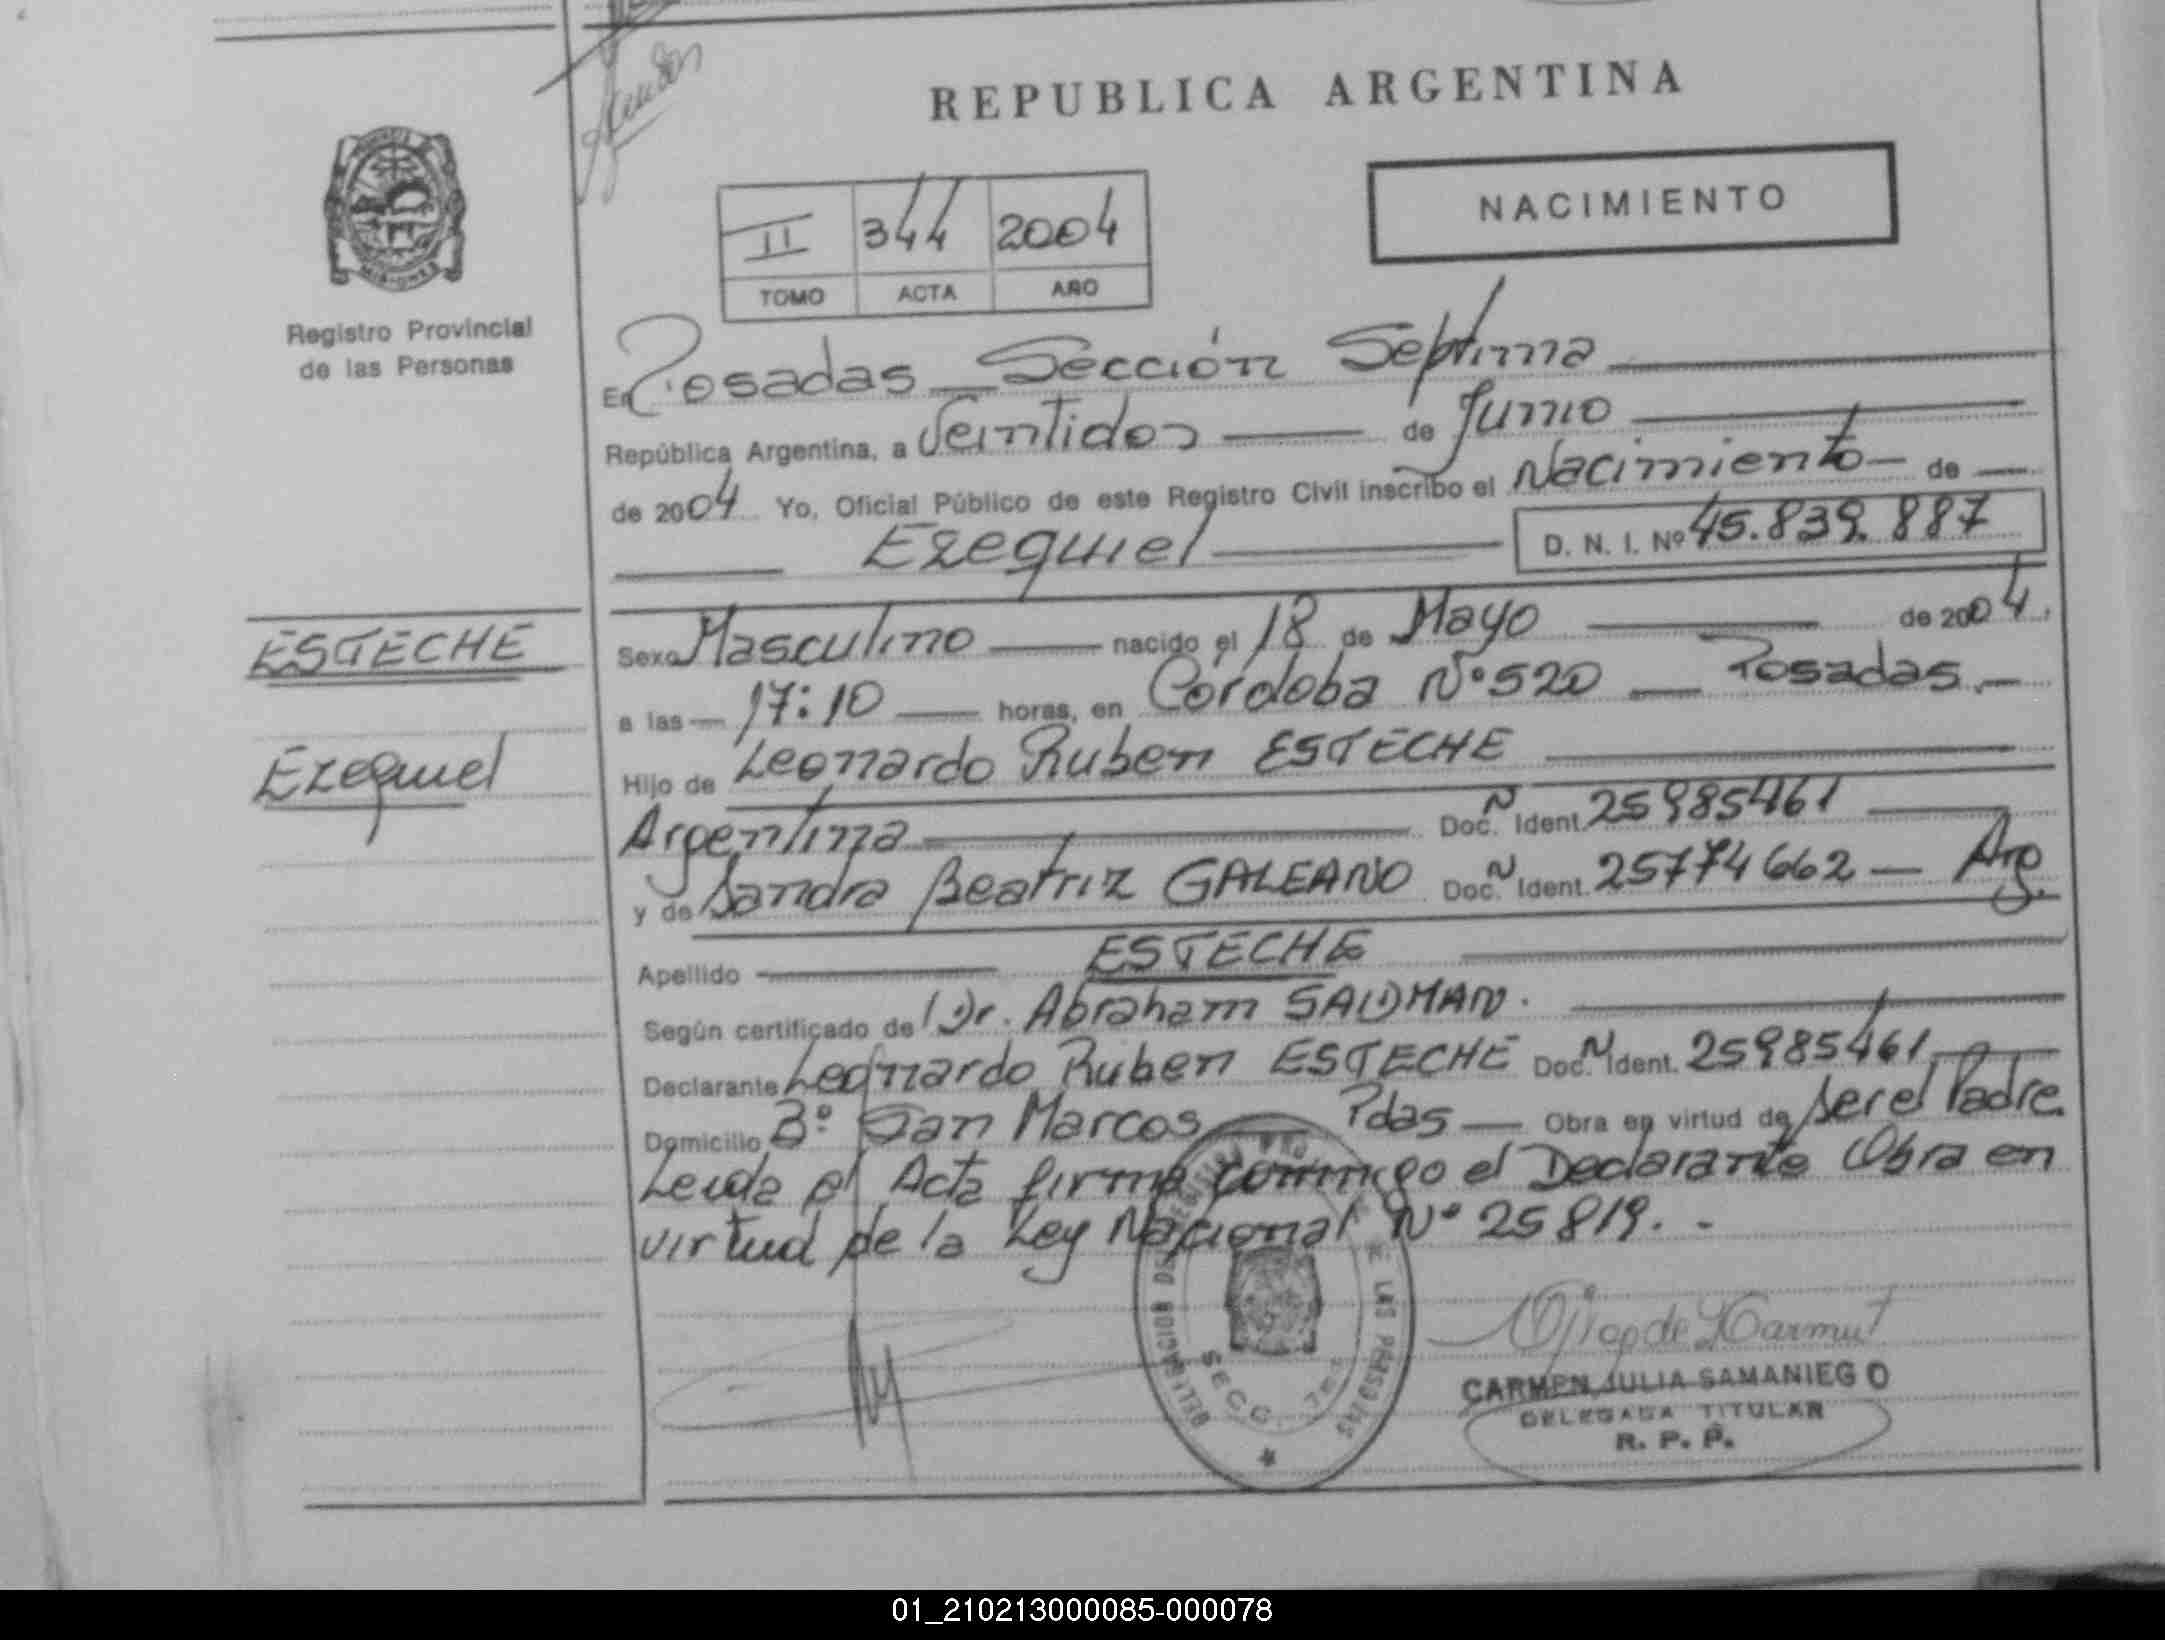 REPUBLICA ARGENTINA
NACIMIENTO
II 344 2004
TOMO ACTA AÑO
MISIONES
Registro Provincial
de las Personas
En Posadas Sección Septima
República Argentina, a Veintidos de Junio
de 2004 Yo, Oficial Público de este Registro Civil inscribo el Nacimiento de
Ezequiel D. N. I. Nº 45.839.887
ESTECHE
Ezequiel
Sexo Masculino nacido el 18 de Mayo de 2004.
a las 17:10 horas, en Cordoba Nº 520 Posadas.
Hijo de Leonardo Ruben ESTECHE
Argentina Doc. N Ident. 25985461
y de Sandra Beatriz GALEANO Doc. N Ident. 25774662 Arg.
Apellido ESTECHE
Según certificado de Dr. Abraham
Declarante Leonardo Ruben ESTECHE Doc. N Ident. 25985461
Domicilio Bº San Marcos Pdas Obra en virtud de Ser el Padre.
Leida el Acta firma conmigo el Declarante Obra en
virtud de la Ley Nacional Nº 25819. -
DELEGACION DEL REGISTRO DE LAS PERSONAS
SECC. 7ma
CARMEN JULIA SAMANIEGO
DELEGADA TITULAR
R. P. P.
01_210213000085-000078